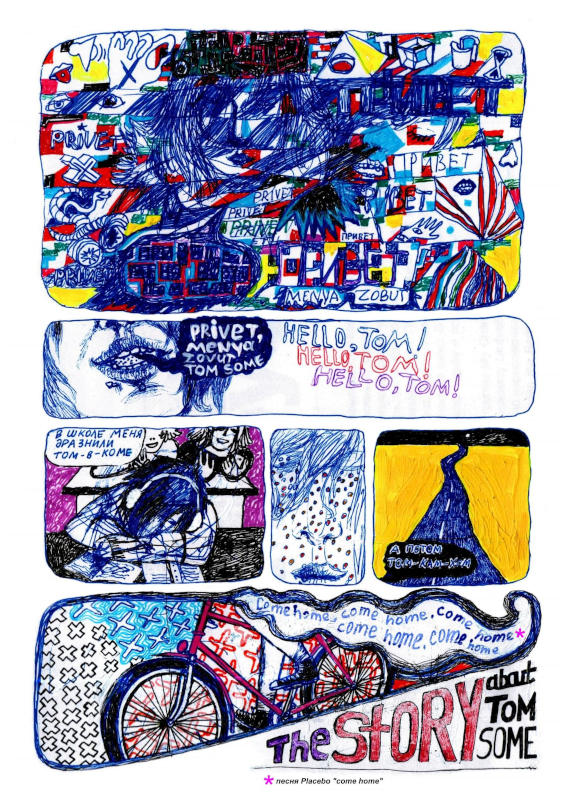 ПРИВЕТ
PRIVET
ПРИВЕТ
PRIVET
PRIVET
ПРИВЕТ
PRIVET
ПРИВЕТ
ПРИВЕТ
MENYA ZOBUT
PRIVET,
MENYA
ZOVUT
TOM SOME
HELLO, TOM!
HELLO, TOM!
HELLO, TOM!
В ШКОЛЕ МЕНЯ
ДРАЗНИЛИ
ТОМ-В-КОМЕ
А ПОТОМ
Come home, come home, come
come home, come home*
home
The STORY
about
TOM
SOME
* песня Placebo "come home"